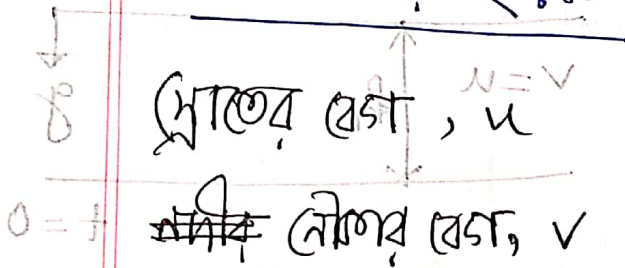 স্রোতের বেগ, u
নৌকার বেগ, v